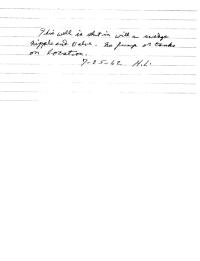 This well is shut in with a swedge
nipple and valve. No pump or tanks
on location.
7-25-62 H.L.